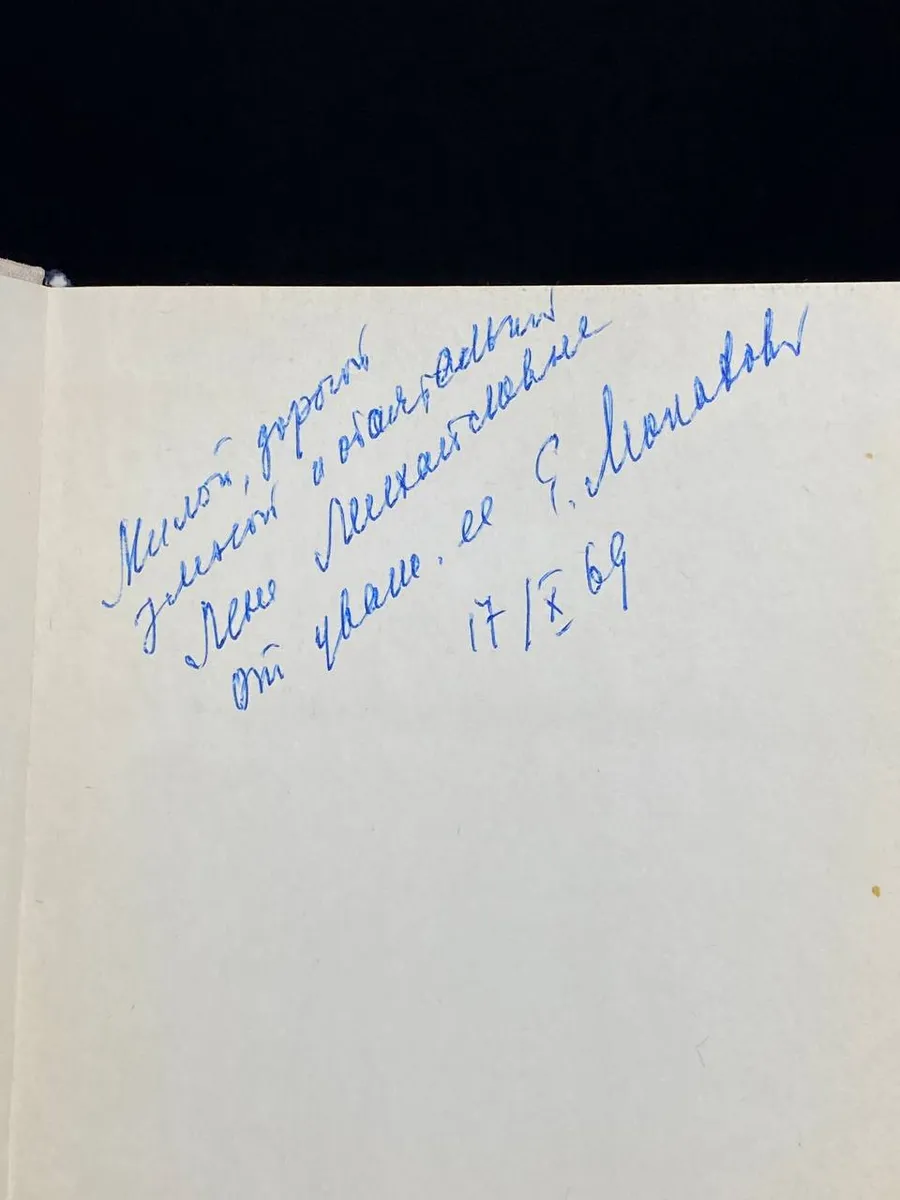 Милой, дорогой
умной и обаятельной
Лене Михайловне
от уваж. ее Е. Монахов
17/X 69